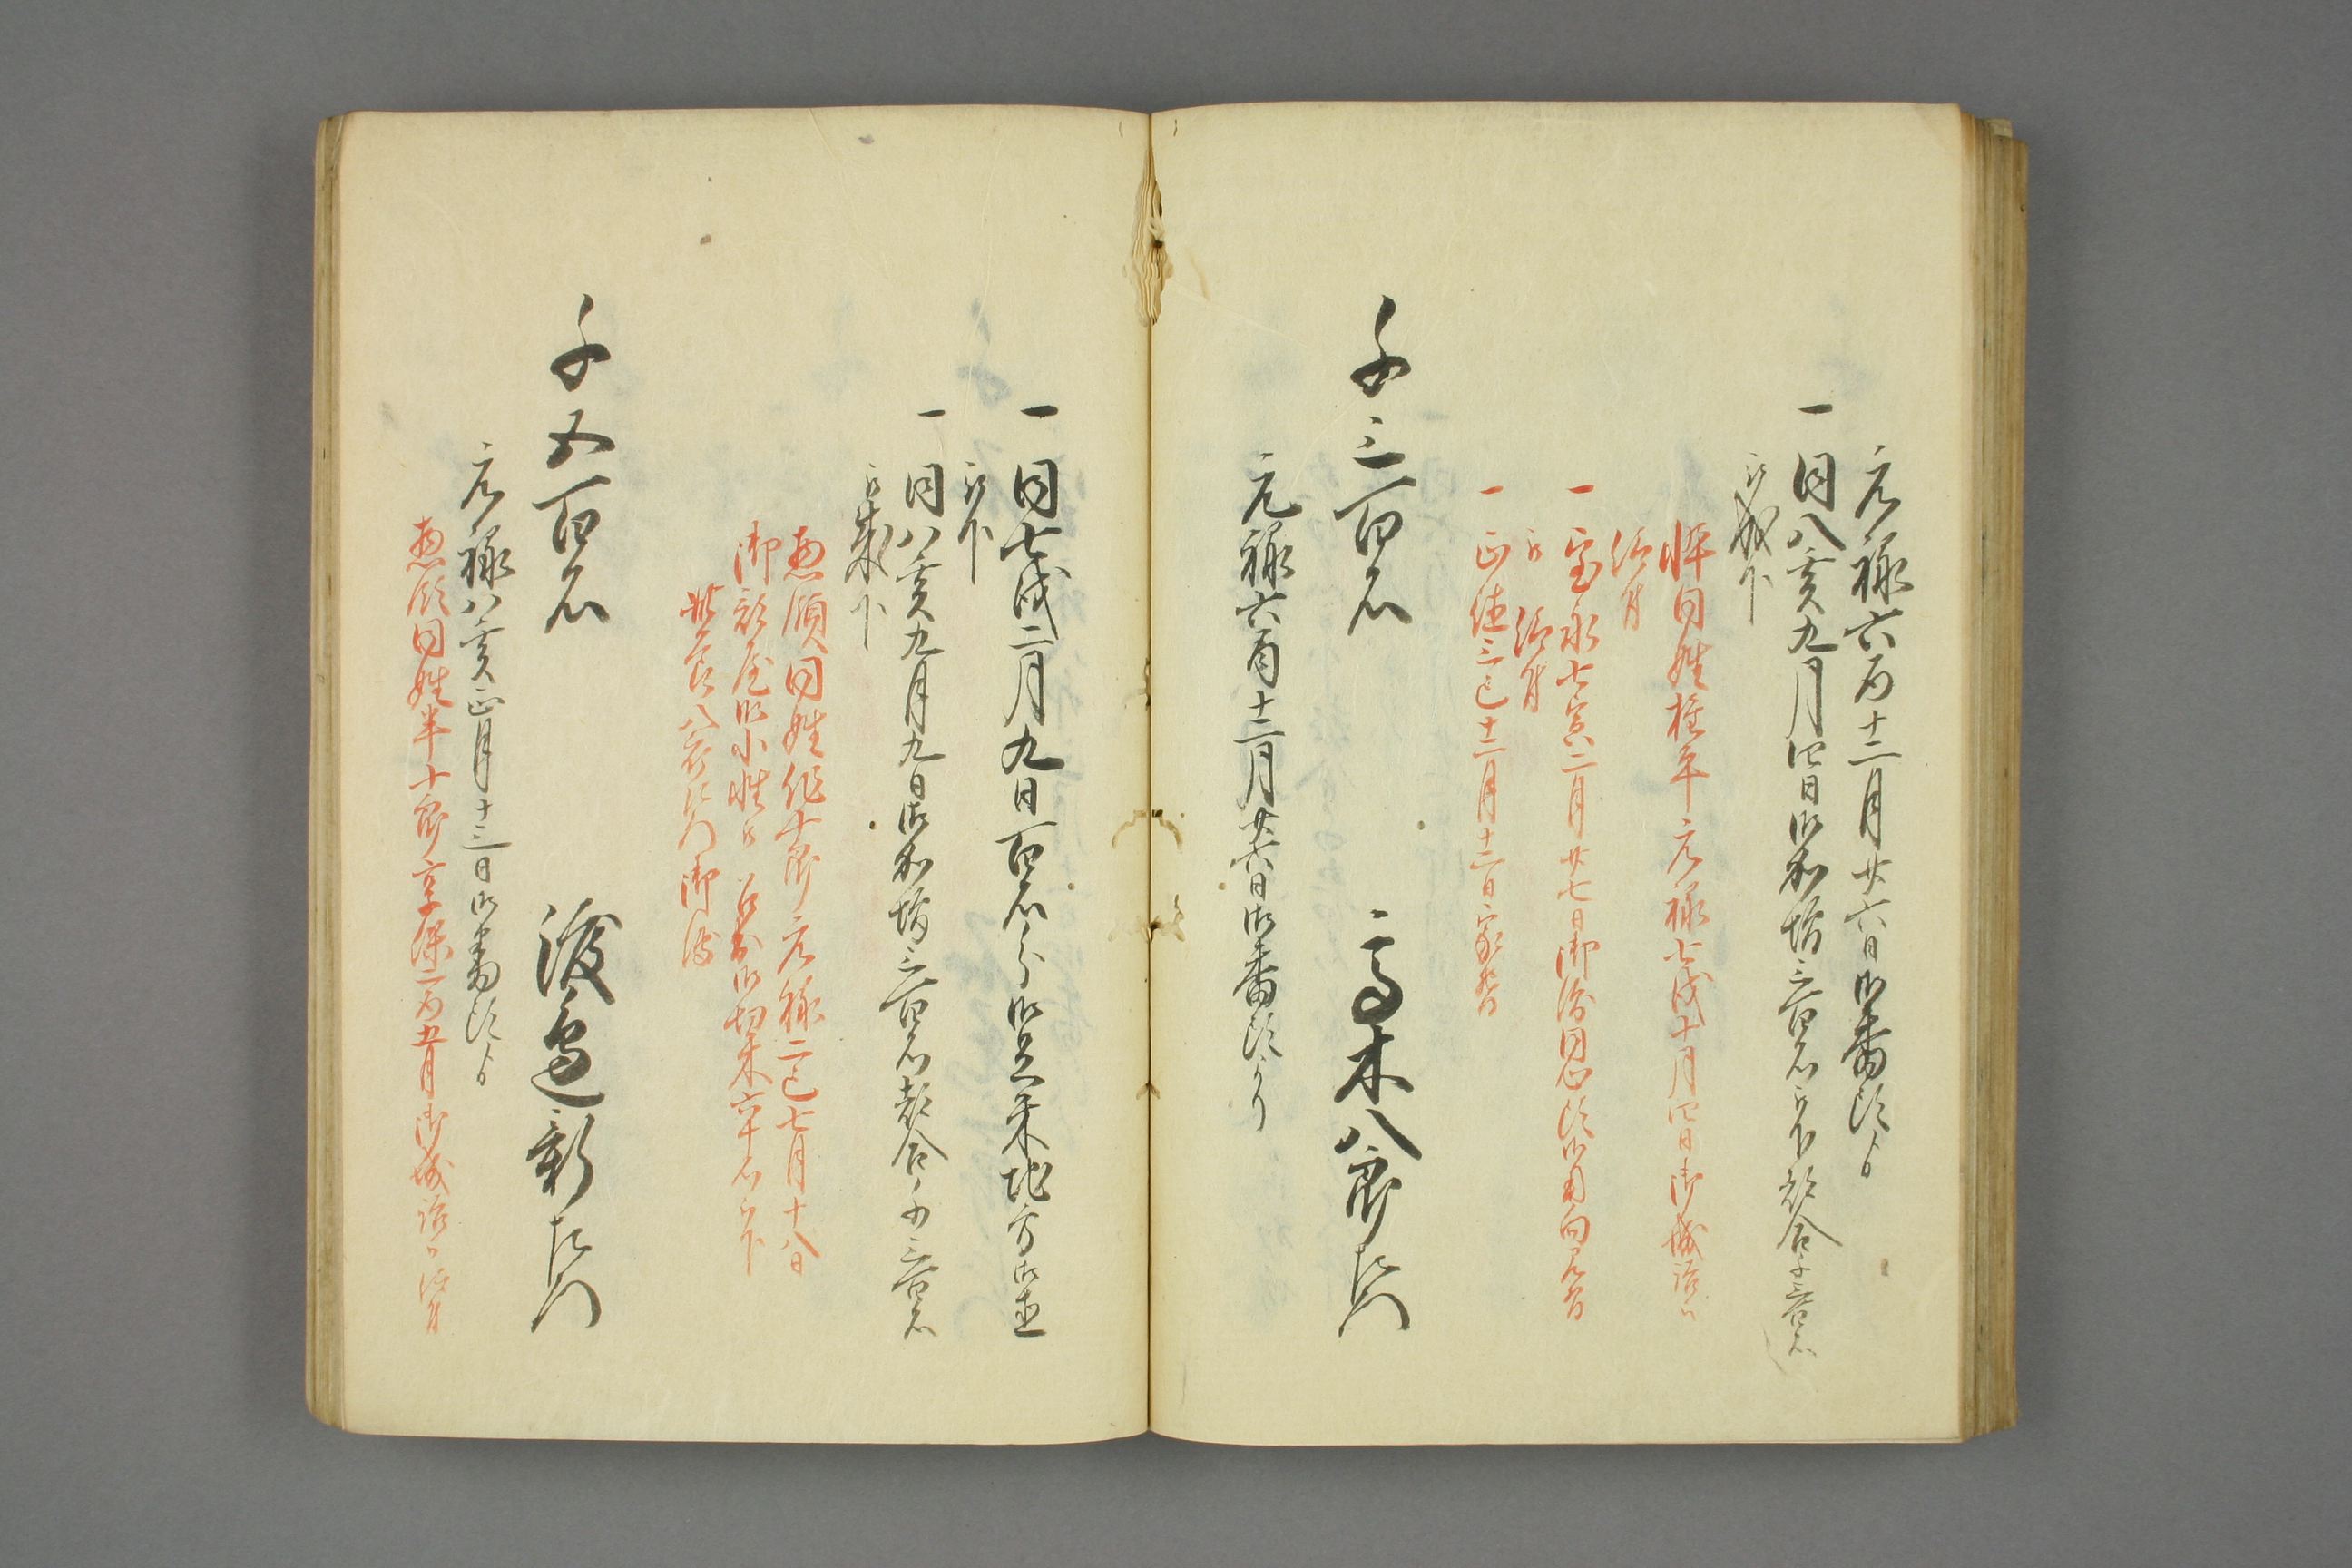 元禄六酉十二月廿六日御番頭ゟ
一同八亥九月四日御加増三百石被下都合千三百石
被成下
忰同姓権平元禄七戌十月四日御城詰被
仰付
一宝永七寅二月廿七日御 頭御用向見習
被仰付
一正徳三巳十二月十二日家督
千三百石 高木八郎左衛門
元禄六酉十二月廿六日御番頭より
一同七戌二月九日百石分御足米地方御直
被下
一同八亥九月九日御加増三百石都合千三百石
被成下
惣領同姓作十郎元禄二巳七月十八日
御部屋御小性被召出御切米六十石被下
千五百石 渡邉新左衛門
元禄八亥正月十三日御番頭ゟ
惣領同姓半十郎享保二酉五月御城詰被仰付